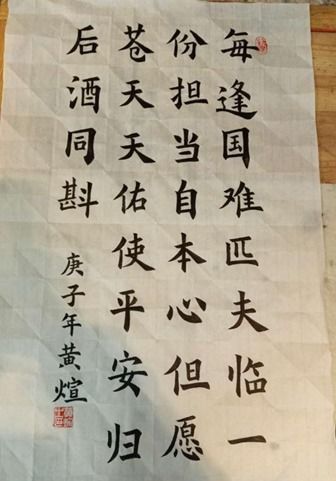 每逢国难匹夫临一
份担当自本心但愿
苍天天佑使平安归
后酒同斟
庚子年黄煊